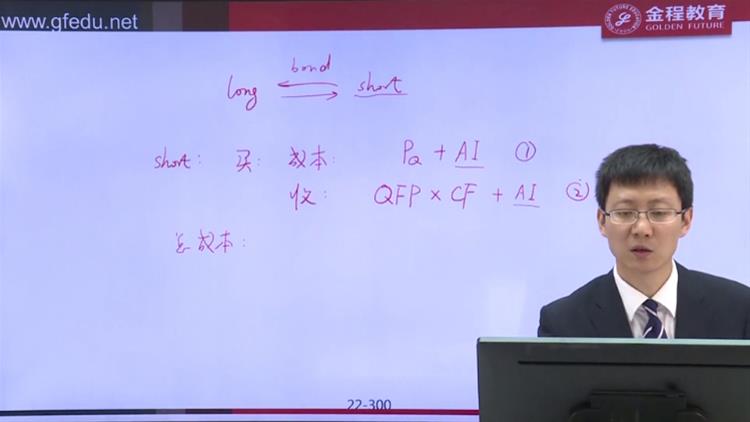 www.gfedu.net
金程教育
GOLDEN FUTURE
bond
long short
short: 买: 成本: PQ + AI ①
收: QFP × CF + AI ②
总成本:
22-300